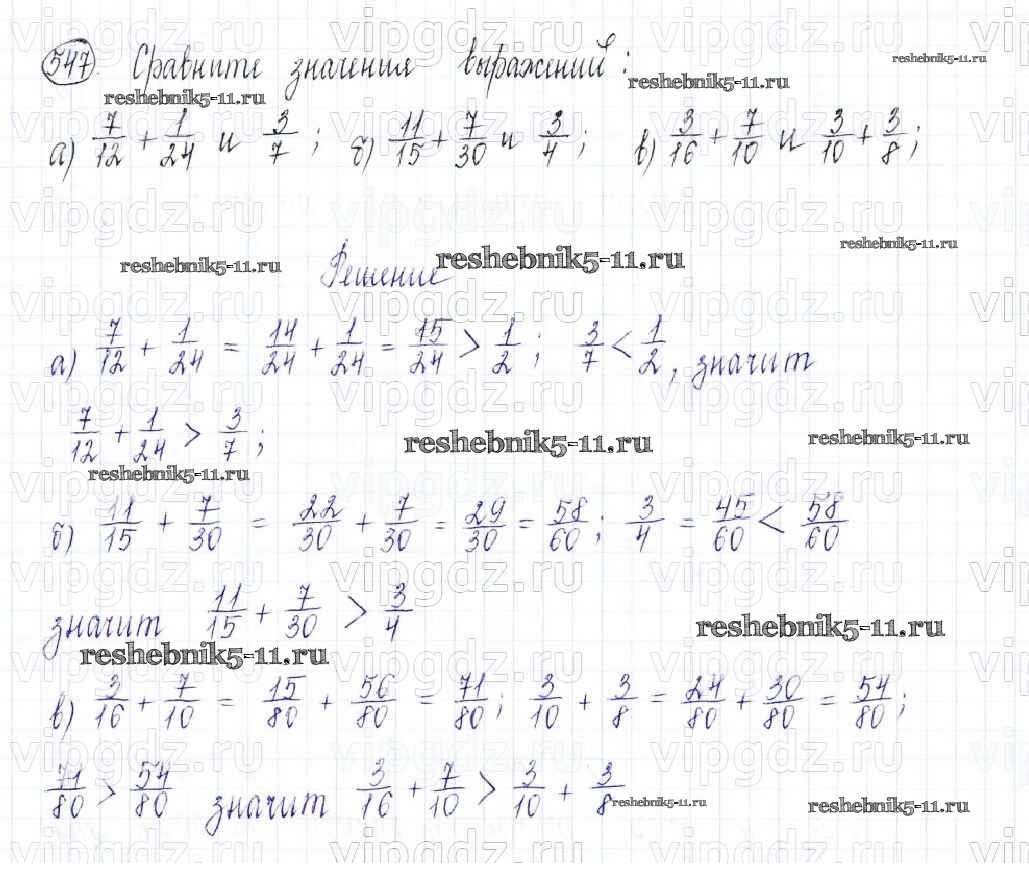 547. Сравните значения выражений:
а) 7/12 + 1/24 и 3/7; б) 11/15 + 7/30 и 3/4; в) 3/16 + 7/10 и 3/10 + 3/8;
Решение
а) 7/12 + 1/24 = 14/24 + 1/24 = 15/24 > 1/2; 3/7 < 1/2, значит
7/12 + 1/24 > 3/7;
б) 11/15 + 7/30 = 22/30 + 7/30 = 29/30 = 58/60; 3/4 = 45/60 < 58/60
значит 11/15 + 7/30 > 3/4
в) 3/16 + 7/10 = 15/80 + 56/80 = 71/80; 3/10 + 3/8 = 24/80 + 30/80 = 54/80;
71/80 > 54/80 значит 3/16 + 7/10 > 3/10 + 3/8
reshebnik5-11.ru
vipgdz.ru